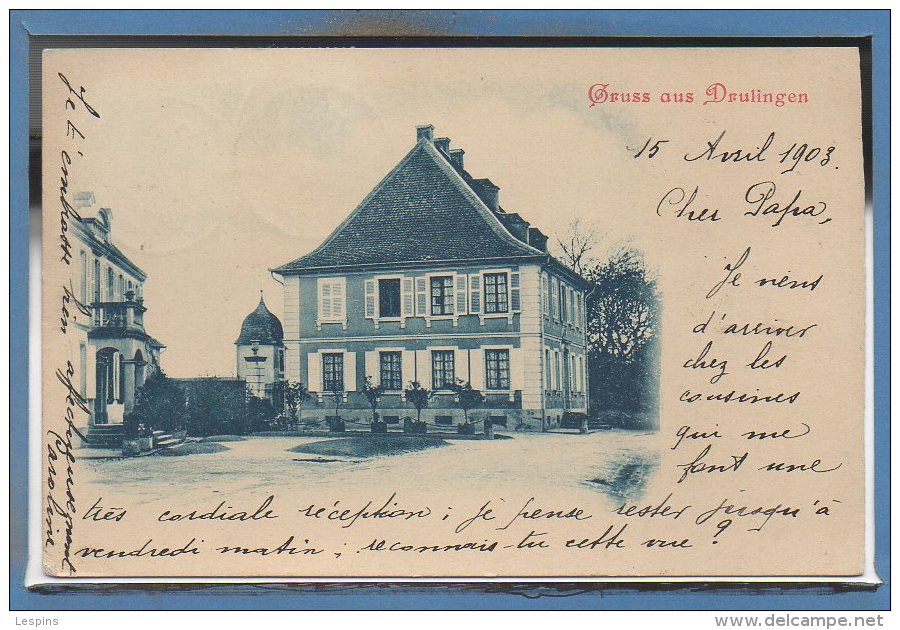 Gruss aus Drulingen
15 Avril 1903.
Cher Papa,
Je viens
d'arriver
chez les
cousines
qui me
font une
très cordiale réception ; je pense rester jusqu'à
vendredi matin ; reconnais-tu cette vue ?
Je t'embrasse bien affectueusement
Caroline
Lespins
www.delcampe.net